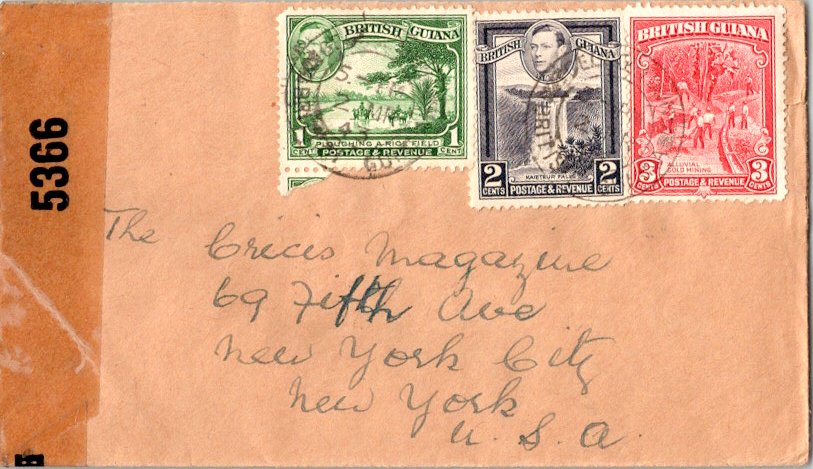 5366
BRITISH GUIANA
1 CENT 1 CENT
PLOUGHING A RICE FIELD
POSTAGE & REVENUE
BRITISH GUIANA
KAIETEUR FALL
2 CENTS POSTAGE & REVENUE 2 CENTS
BRITISH GUIANA
ALLUVIAL
GOLD MINING
3 CENTS POSTAGE & REVENUE 3 CENTS
The Crecis Magazine
69 Fifth Ave
New York City
New York
U. S. A.